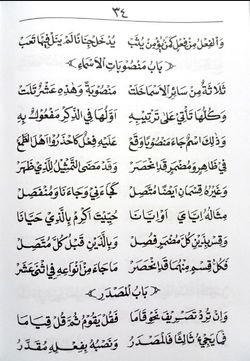 ٣٤
وَالْفِعْلُ مِنْ فِعْلٍ كَمَنْ يُؤْمِنْ يُثَبْ يُدْخَلْ جِنَانًا لَمْ يَنَلْ فِيهَا تَعَبْ
﴿ بَابُ مَنْصُوبَاتِ الْأَسْمَاءِ ﴾
ثَلَاثَةٌ مِنْ سَائِرِ الْأَسْمَا خَلَتْ مَنْصُوبَةً وَهٰذِهِ عَشْرٌ تَلَتْ
وَكُلُّهَا تَأْتِي عَلَى تَرْتِيبِهِ أَوَّلُهَا فِي الذِّكْرِ مَفْعُولٌ بِهِ
وَذٰلِكَ اسْمٌ جَاءَ مَنْصُوبًا وَقَعْ عَلَيْهِ فِعْلٌ كَاحْذَرُوا أَهْلَ الطَّمَعْ
فِي ظَاهِرٍ وَمُضْمَرٍ قَدِ انْحَصَرْ وَقَدْ مَضَى التَّمْثِيلُ لِلَّذِي ظَهَرْ
وَغَيْرُهُ قِسْمَانِ أَيْضًا مُتَّصِلْ كَجَاءَنِي وَجَاءَنَا وَمُنْفَصِلْ
مِثَالُهُ إِيَّايَ أَوْ إِيَّانَا حَيَّيْتَ أَكْرِمْ بِالَّذِي حَيَّانَا
وَقِسْ بِذَيْنِ كُلَّ مُضْمَرٍ فُصِلْ وَبِاللَّذَيْنِ قَبْلُ كُلَّ مُتَّصِلْ
فَكُلُّ قِسْمٍ مِنْهُمَا قَدِ انْحَصَرْ مَا جَاءَ مِنْ أَنْوَاعِهِ فِي اثْنَيْ عَشَرْ
﴿ بَابُ الْمَصْدَرِ ﴾
وَإِنْ تُرِدْ تَصْرِيفَ نَحْوِ قَامَا فَقُلْ يَقُومُ ثُمَّ قُلْ قِيَامَا
فَمَا يَجِيءُ ثَالِثًا فَالْمَصْدَرُ وَنَصْبُهُ بِفِعْلِهِ مُقَدَّرُ